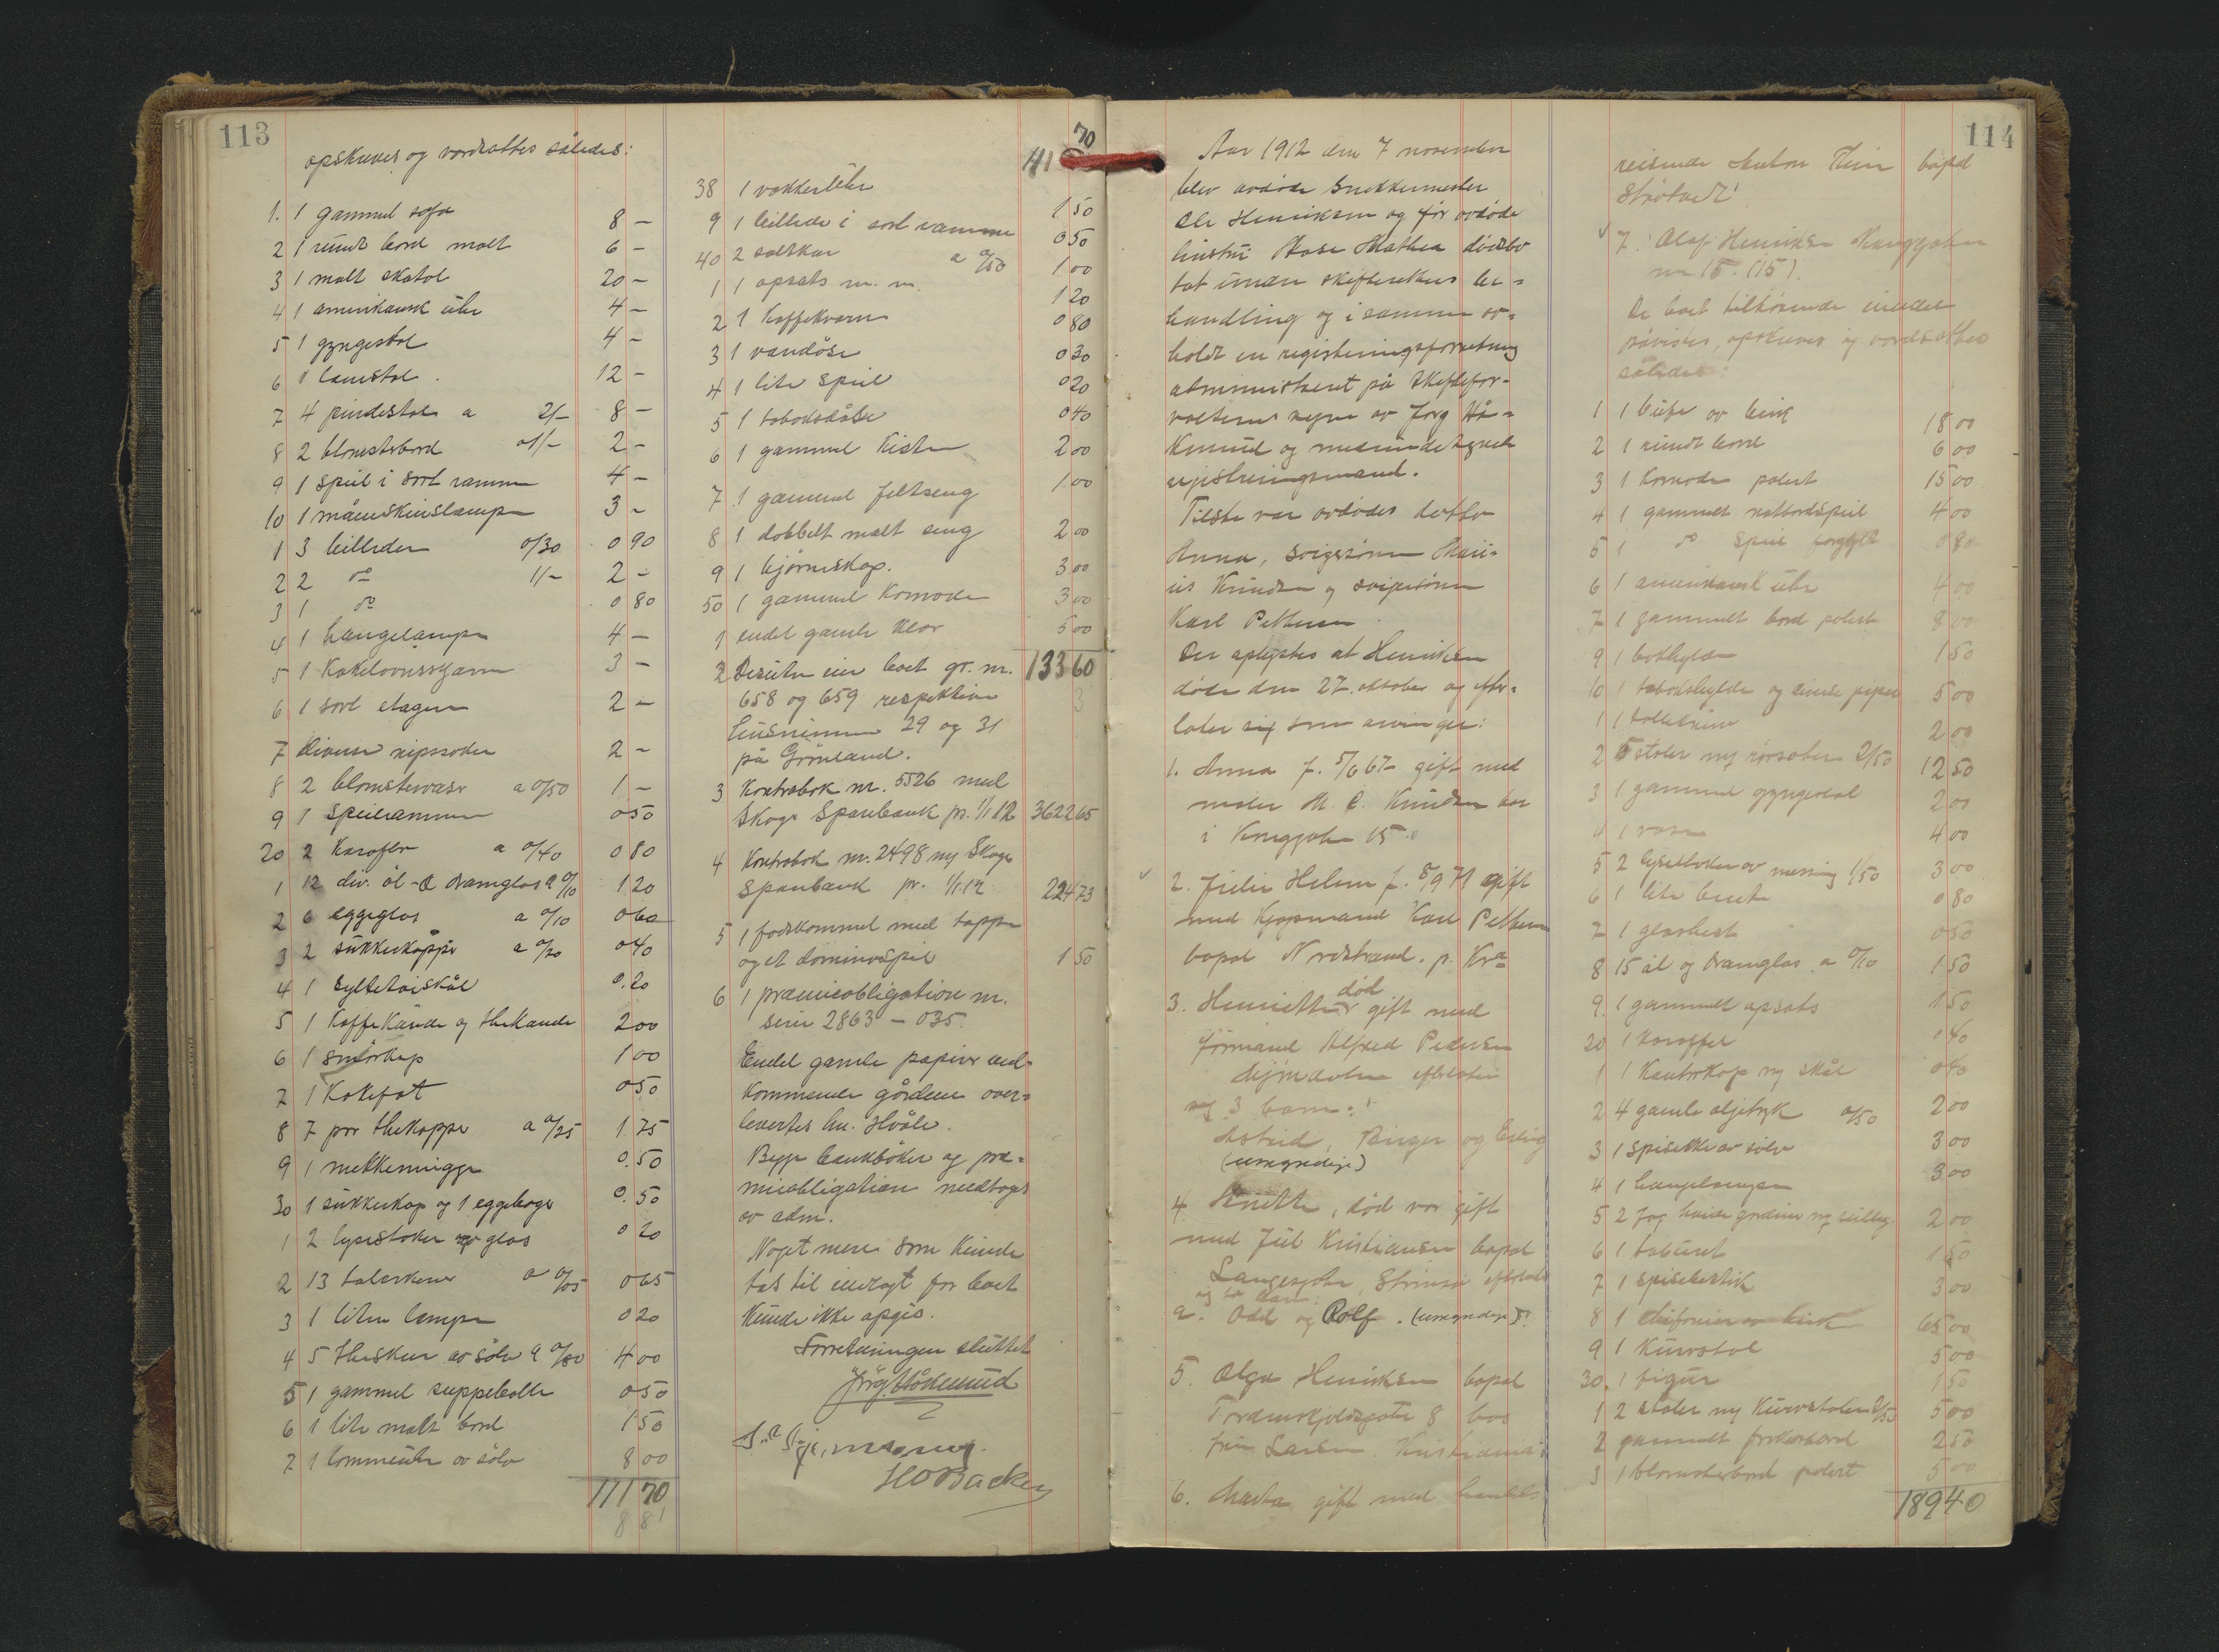 113
opskrives og værdsattes således:
1. 1 gammel sofa 8 –
2 1 rundt bord malt 6 –
3 1 malt skatol 20 –
4 1 amerikansk uhr 4 –
5 1 gyngestol 4 –
6 1 lænestol. 12 –
7 4 pindestole a 2/– 8 –
8 2 blomsterbord a 1/– 2 –
9 1 speil i sort ramme 4 –
10 1 måneskinslampe 3 –
1 3 billeder 0/30 0 90
2 2 do 1/– 2 –
3 1 do 0 80
4 1 hængelampe 4 –
5 1 Kakelovnsskjærm 3 –
6 1 sort etagere 2 –
7 diverse nipssaker 2 –
8 2 blomstervaser a 0/50 1 –
9 1 speilramme 0 50
20 2 Karafler a 0/40 0 80
1 12 div. øl- & dramglas a 0/10 1 20
2 6 eggeglas a 0/10 0 60
3 2 sukkerkopper a 0/20 0 40
4 1 syltetøiskål 0.20
5 1 Kaffekande og thekande 2 00
6 1 smørkop 1 00
7 1 Kakefat 0 50
8 7 par thekopper a 0/25 1.75
9 1 melkemugge 0.50
30 1 sukkerkop og 1 eggebæger 0.50
1 2 lysestaker av glas 0 20
2 13 talerkener a 0/05 0 65
3 1 liten lampe 0 20
4 5 theskeer av sølv a 0/80 4 00
5 1 gammel suppebolle 0 50
6 1 lite malt bord 1 50
7 1 lommeuhr av sølv 8 00
171 70
70
38 1 vækkeruhr 1 50
9 1 billede i sort ramme 0 50
40 2 saltkar a 0/50 1 00
1 1 opsats m. m. 1 20
2 1 Kaffekvern 0 80
3 1 vandøse 0 30
4 1 lite speil 0 20
5 1 tobaksdåse 0 40
6 1 gammel Kiste 2 00
7 1 gammel feltseng 1 00
8 1 dobbelt malt seng 2 00
9 1 hjørneskap. 3 00
50 1 gammel Komode 3 00
1 endel gamle klær 5 00
2 Desuten eier boet gr. nr. 133 60
658 og 659 respektive
husnummer 29 og 31
på Grønland.
3 Kontrabok nr. 5526 med
Skoger Sparebank pr. 1/1 12 3622 65
4 Kontrabok nr. 2498 ny Skoger
Sparebank pr. 1/1.12 224 73
5 1 forskommet med tappe
og et dominospil 1 50
6 1 præmieobligation nr.
serie 2863 – 035.
Endel gamle papirer ved-
kommende gården over-
levertes hr. Hvåle.
Begge bankbøker og præ-
mieobligation medtoges
av adm.
Noget mere som kunde
tas til indtægt for boet
kunde ikke opgis.
Forretningen sluttet
Jørg Håkenrud
HO Backer
Aar 1912 den 7 november
blev avdøde snekkermester
Ole Henriksen og før avdøde
hustru Hase Mathea dødsbo
tat under skifterettens be-
handling og i samme av-
holdt en registreringsforretning
administreret på skiftefor-
valterens vegne av Jørg Hå-
kenrud og medundertegnede
registreringsmænd.
Tilstede var avdødes datter
Anna, svigersønn Mari-
us Knudsen og svigersønn
Karl Pettersen.
Det oplystes at Henriksen
døde den 27. oktober og efter-
later sig som arvinger:
1. Anna f. 5/6 67 – gift med
maler M. C. Knudsen her
i Kongegaten 15.
2. Julie Helene f. 8/9 71 gift
med Kjøpmand Karl Pettersen
bopæl Nordstrand. p. Kra
3. Henriette død gift med
formand Alfred Pedersen
Mjøndalen efterlater
sig 3 barn:
Astrid, Birger og Erling
(umyndige)
4. Anette, død var gift
med Jul Kristiansen bopæl
Langesgate, Strømsø efterlater
sig to barn:
a. Odd og Rolf. (umyndige)
5. Olga Henriksen bopæl
Tordenskjoldsgate 8 hos
fru Larsen Kristiania
6. Marta gift med handels
114
reisende Anton Thim bopæl
Strøtvedt
7. Olaf Henriksen Kongegaten
nr 15. (15).
De boet tilhørende eiendeler
påvistes, opskreves og værdsattes
således:
1 1 bufe av birk 18 00
2 1 rundt bord 6 00
3 1 Komode polert 15 00
4 1 gammelt natbordspeil 4 00
5 1 do speil forgylt 0 80
6 1 amerikansk uhr 4 00
7 1 gammelt bord polert 8 00
9 1 bokhylde 1 50
10 1 tobakshylde og diverse piper 5 00
1 1 toiletskrin 2 00
2 5 stoler ny rørsæter 2/50 12 50
3 1 gammel gyngestol 2 00
4 1 vase 4 00
5 2 lysestaker av messing 1/50 3 00
6 1 lite buret 0 80
7 1 glashest 0 50
8 15 øl og dramglas a 0/10 1 50
9. 1 gammelt opsats 1 50
20 1 Karaffel 0 40
1 1 Kanterkop ny skål 0 40
2 4 gamle oljetryk 0/50 2 00
3 1 spiseske av sølv 3 00
4 1 hængelampe 3 00
5 2 fag hvite gardiner 2 00
6 1 taburet 1 50
7 1 spisebestik 3 00
8 1 chifonier av birk 65 00
9 1 Kurvstol 5 00
30. 1 figur 1 50
1 2 stoler ny Kurvstoler 2/50 5 00
2 gammelt frokostbord 2 50
3 1 blomsterbord polert 5 00
189 40